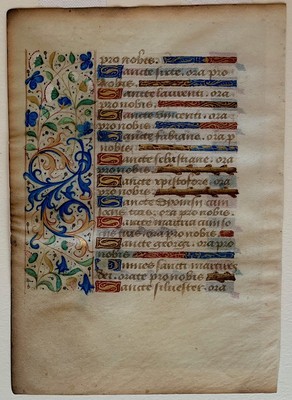 pro nobis.
Sancte sixte. ora pro
nobis.
Sancte laurenti. ora
pro nobis.
Sancte vincenti. ora
pro nobis.
Sancte fabiane. ora p
nobis.
Sancte sebastiane. ora
pro nobis.
Sancte xpistofore. ora
pro nobis.
Sancte dyonisi cum
sociis tuis. ora pro nobis.
Sancte maurici cum so
ciis tuis. ora pro nobis
Sancte georgi. ora pro
nobis.
Omnes sancti martires
orate pro nobis
Sancte silvester. ora